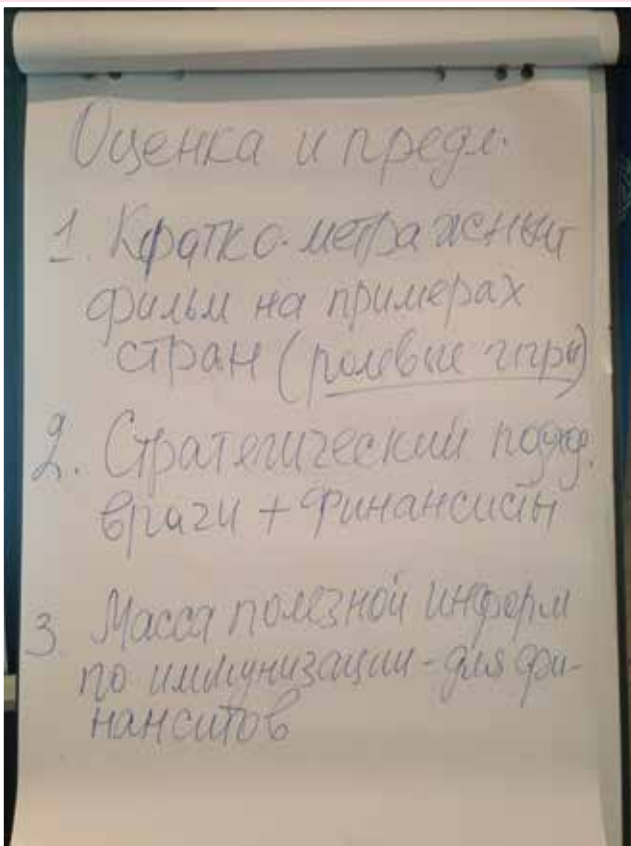 Оценка и предл.
1. Кратко-метражный
фильм на примерах
стран (ролевые игры)
2. Стратегический подход.
врачи + финансисты
3 Масса полезной информ
по иммунизации - для фи-
нанситов